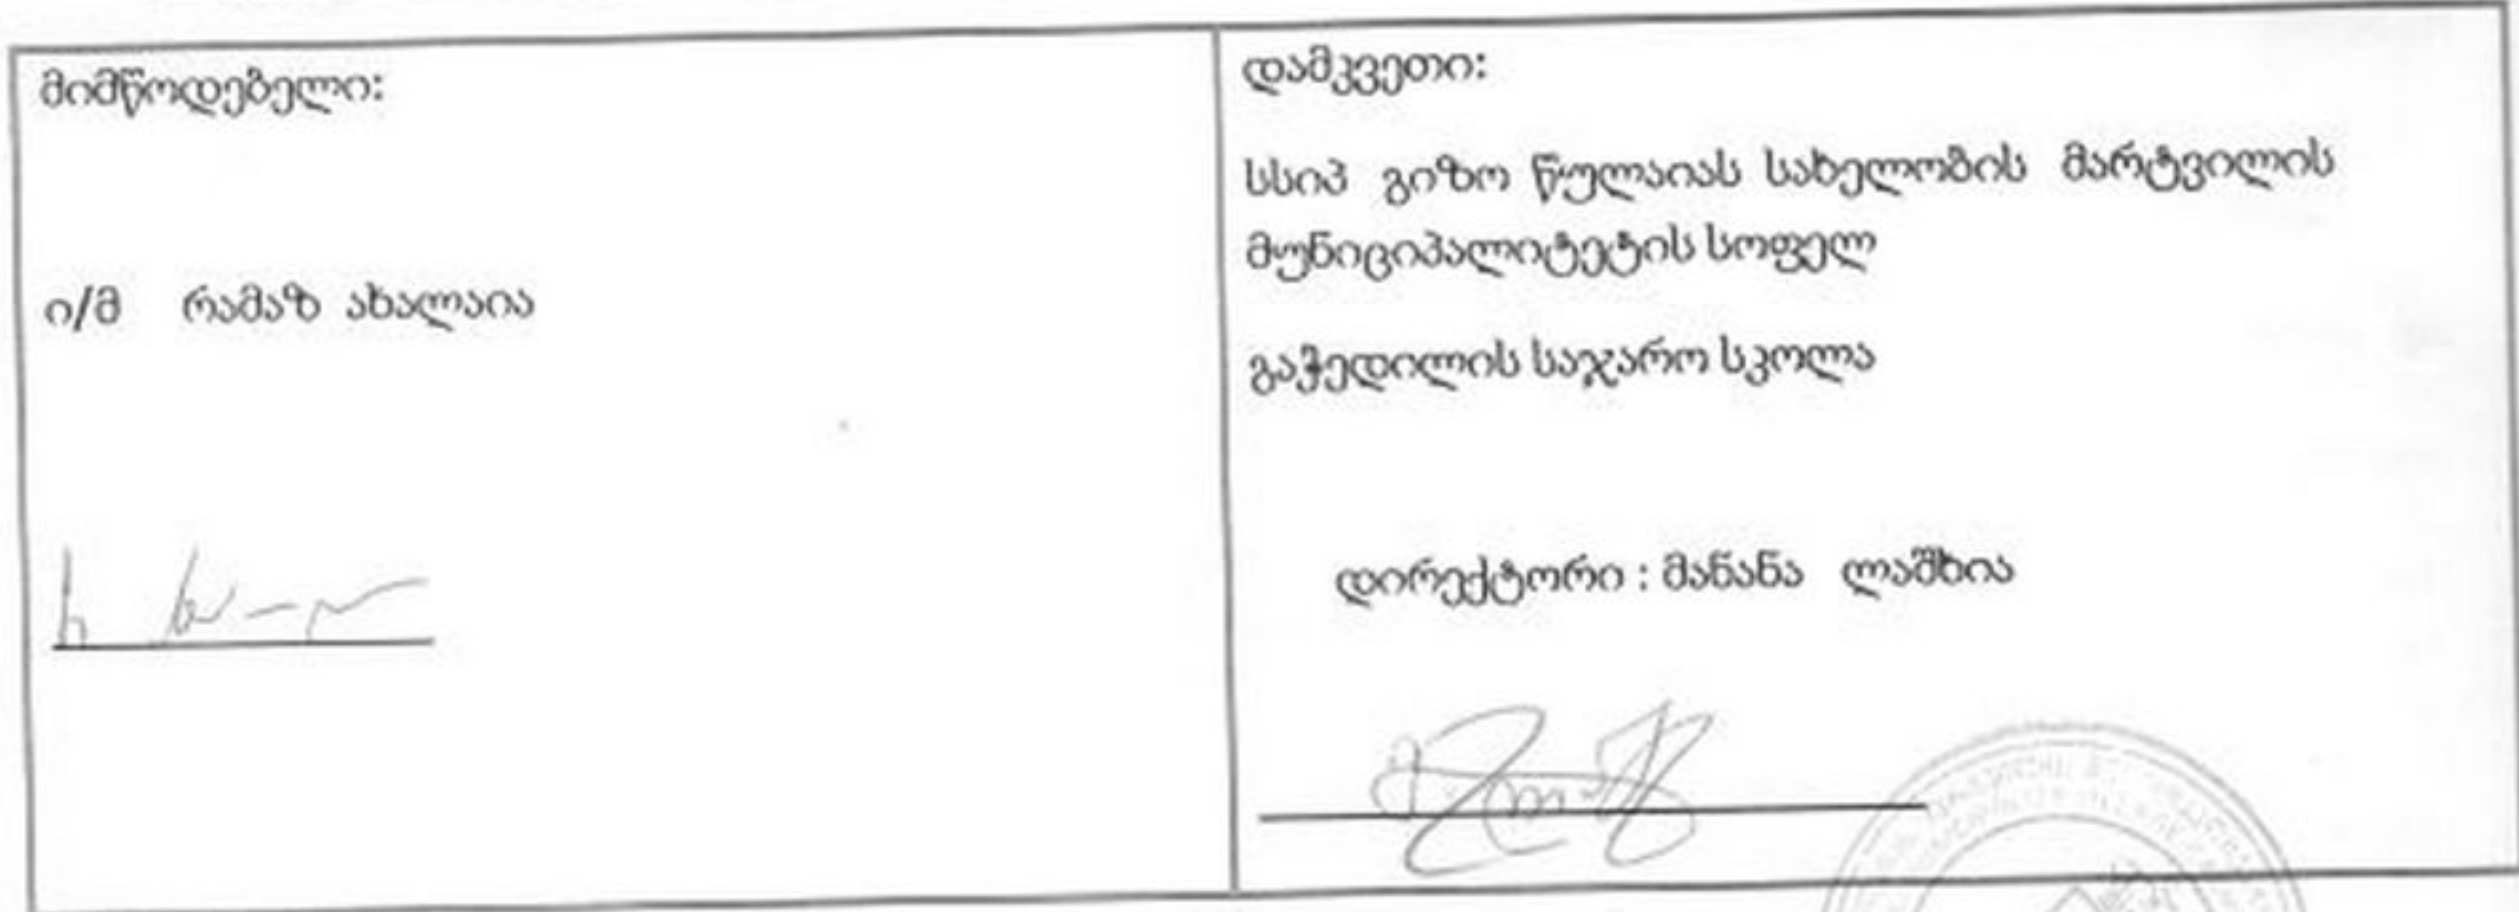 მიმწოდებელი:
ი/მ რამაზ ახალაია
დამკვეთი:
სსიპ გიზო წულაიას სახელობის მარტვილის
მუნიციპალიტეტის სოფელ
გაჭედილის საჯარო სკოლა
დირექტორი : მანანა ლაშხია